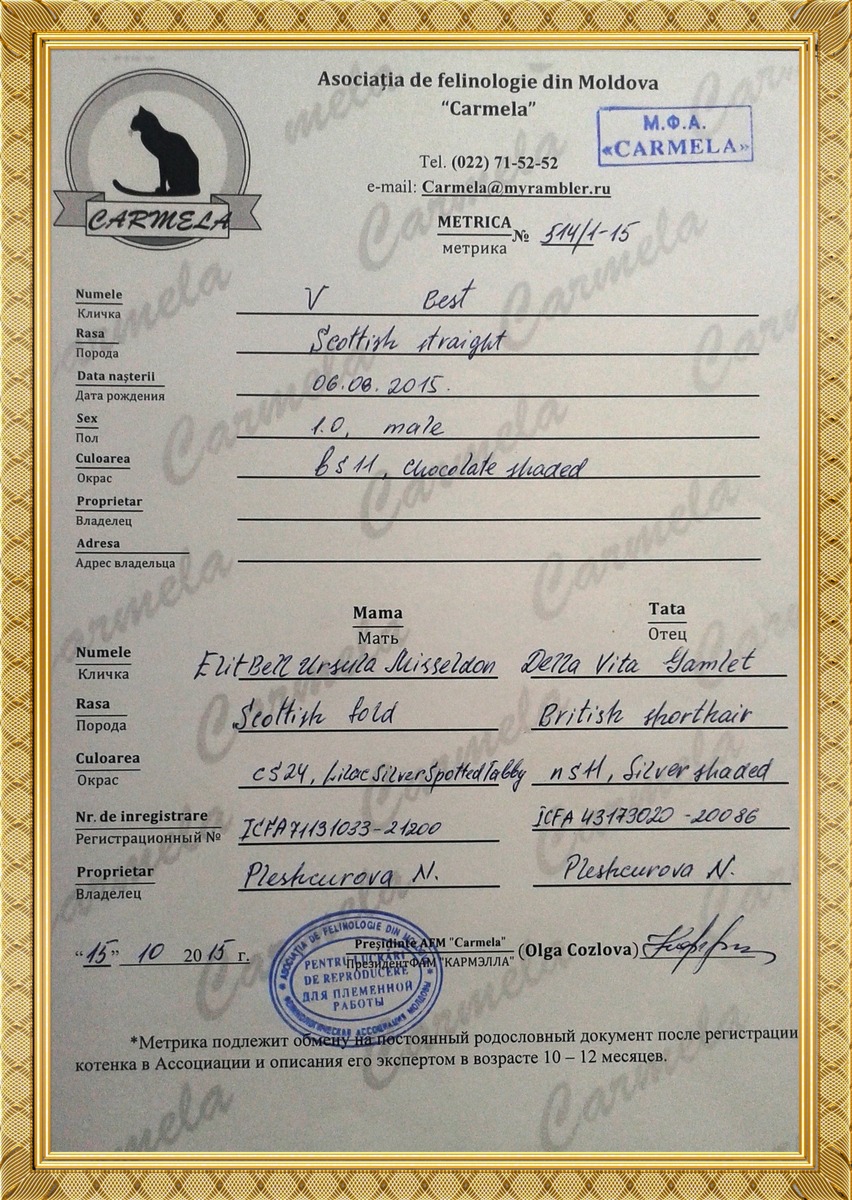 Asociația de felinologie din Moldova
“Carmela”
М.Ф.А.
«CARMELA»
Tel. (022) 71-52-52
e-mail: Carmela@myrambler.ru
CARMELA
METRICA
метрика
№ 514/1-15
Numele
Кличка
V Best
Rasa
Порода
Scottish straight
Data nașterii
Дата рождения
06.08.2015.
Sex
Пол
1.0, male
Culoarea
Окрас
bs11, chocolate shaded
Proprietar
Владелец
Adresa
Адрес владельца
Mama
Мать
Tata
Отец
Numele
Кличка
ElitBell Ursula Misseldon
Della Vita Gamlet
Rasa
Порода
Scottish fold
British shorthair
Culoarea
Окрас
cs24, Lilac Silver Spotted Tabby
ns11, Silver shaded
Nr. de inregistrare
Регистрационный №
ICFA 71131033-21200
ICFA 43173020 -20086
Proprietar
Владелец
Pleshcurova N.
Pleshcurova N.
“15” 10 2015 г.
Președinte AFM "Carmela"
ПрезидентФАМ "КАРМЭЛЛА"
(Olga Cozlova)
ASOCIAȚIA DE FELINOLOGIE DIN MOLDOVA
PENTRU LUCRĂRI
DE REPRODUCERE
ДЛЯ ПЛЕМЕННОЙ
РАБОТЫ
ФЕЛИНОЛОГИЧЕСКАЯ АССОЦИАЦИЯ МОЛДОВЫ
*Метрика подлежит обмену на постоянный родословный документ после регистрации
котенка в Ассоциации и описания его экспертом в возрасте 10 – 12 месяцев.